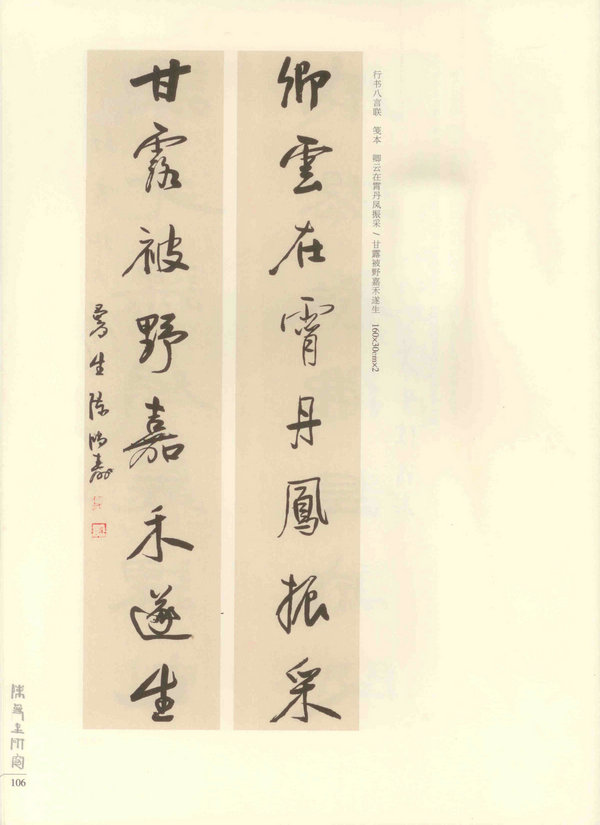 行书八言联 笺本 卿云在霄丹凤振采/甘露被野嘉禾遂生 160×30cm×2
卿雲在霄丹鳳振采
甘露被野嘉禾遂生
曼生陈鸿寿
106